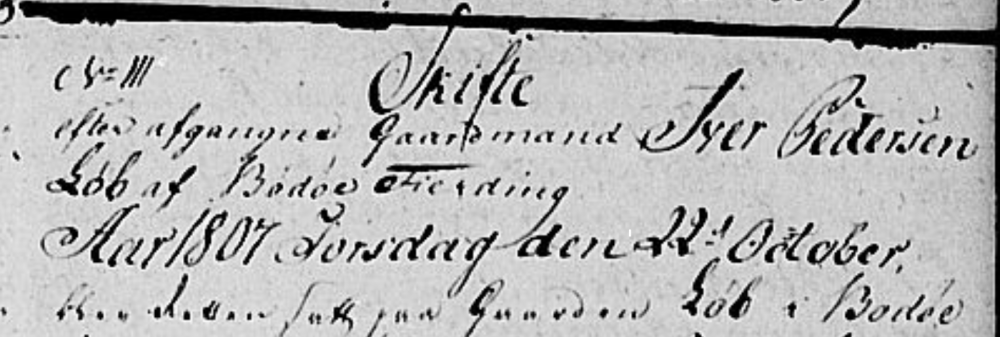 No III Skifte
efter afgangne Gaardmand Iver Pedersen
Løb af Bodøe Fierding
Aar 1807 Torsdag den 22d October.
blev Retten satt paa Gaarden Løb i Bodøe